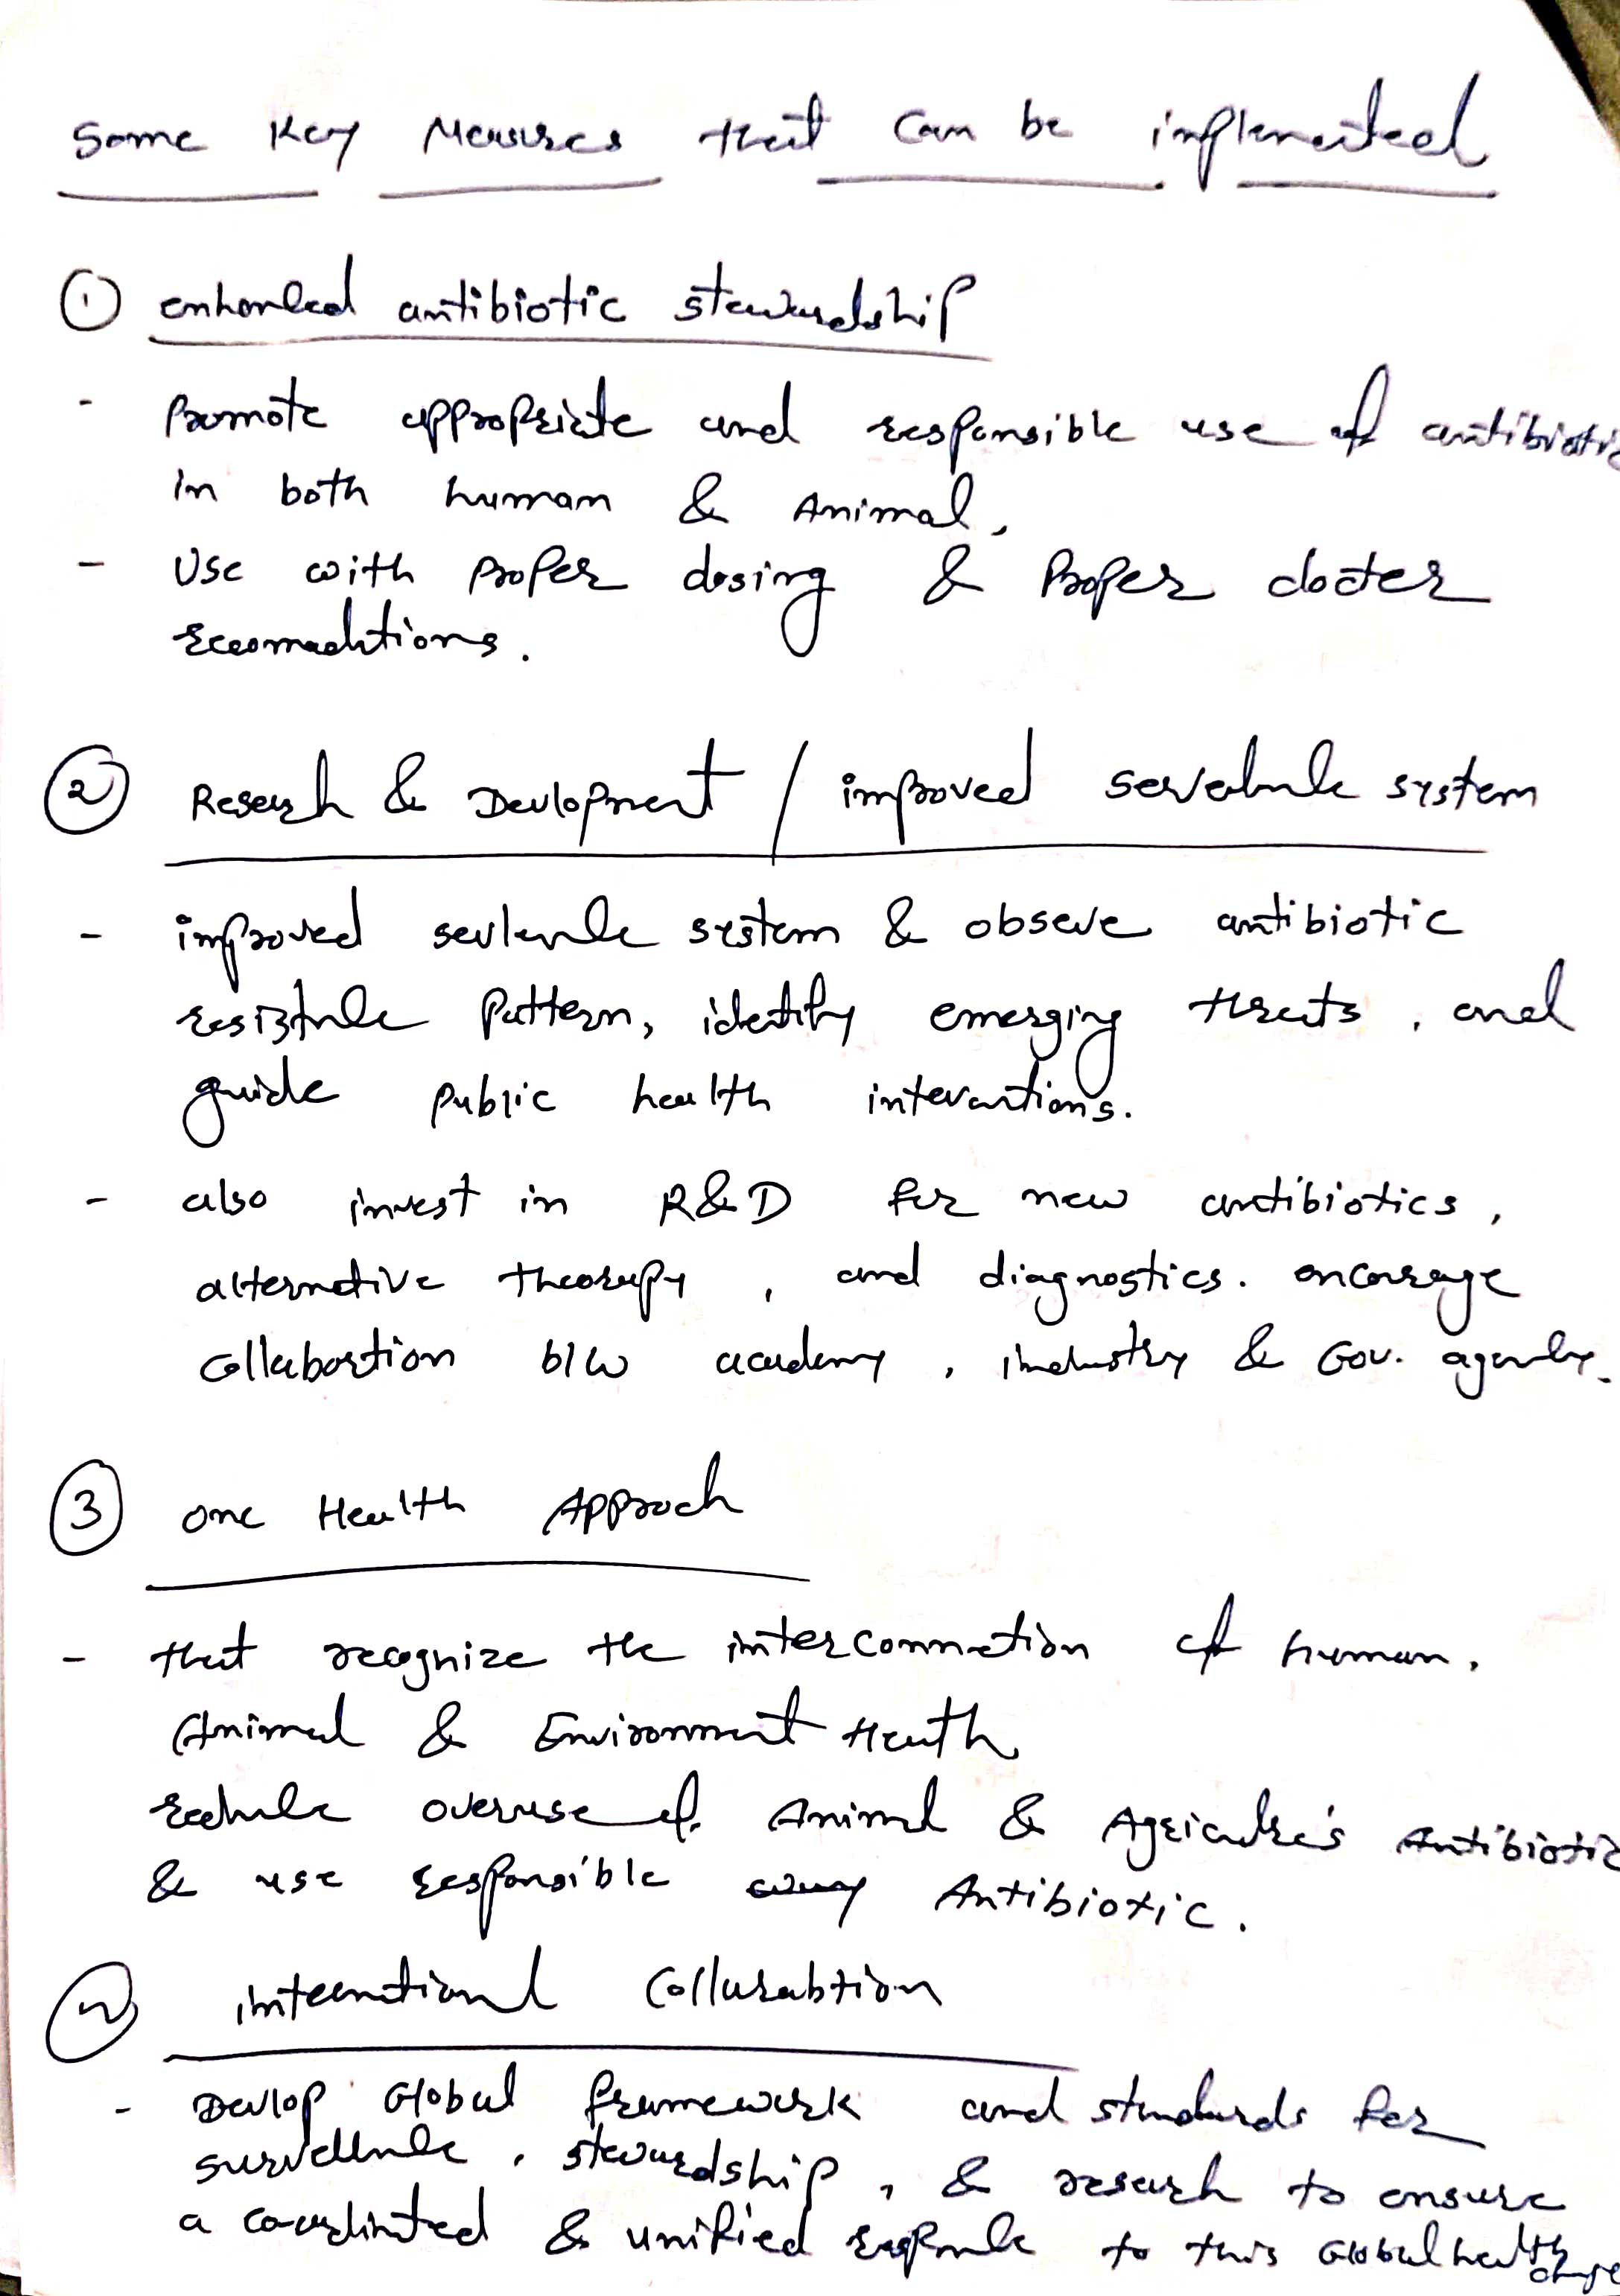 Some Key Measures that can be implemented
① enhanced antibiotic stewardship
- Promote appropriate and responsible use of antibiotic
in both human & Animal.
- Use with proper dosing & Proper docter
reccomadtions.
② Reserch & Devlopment / improved servelance system
- improved servlence system & observe antibiotic
resistance Pattern, identify emerging threats, and
guide public health interventions.
- also invest in R&D for new antibiotics,
alternative theorapy, and diagnostics. encourage
collabortion b/w academy, industry & Gov. agency.
③ one Health Approch
- that recognize the interconnection of human,
Animal & Environment Heath
reduce overuse of Animal & Agriculture's Antibiotic
& use responsible Antibiotic.
international Collarabtion
- Devlop Global framework and standards for
survellance, stewardship, & reserch to ensure
a co-ordinated & unified response to this Global health